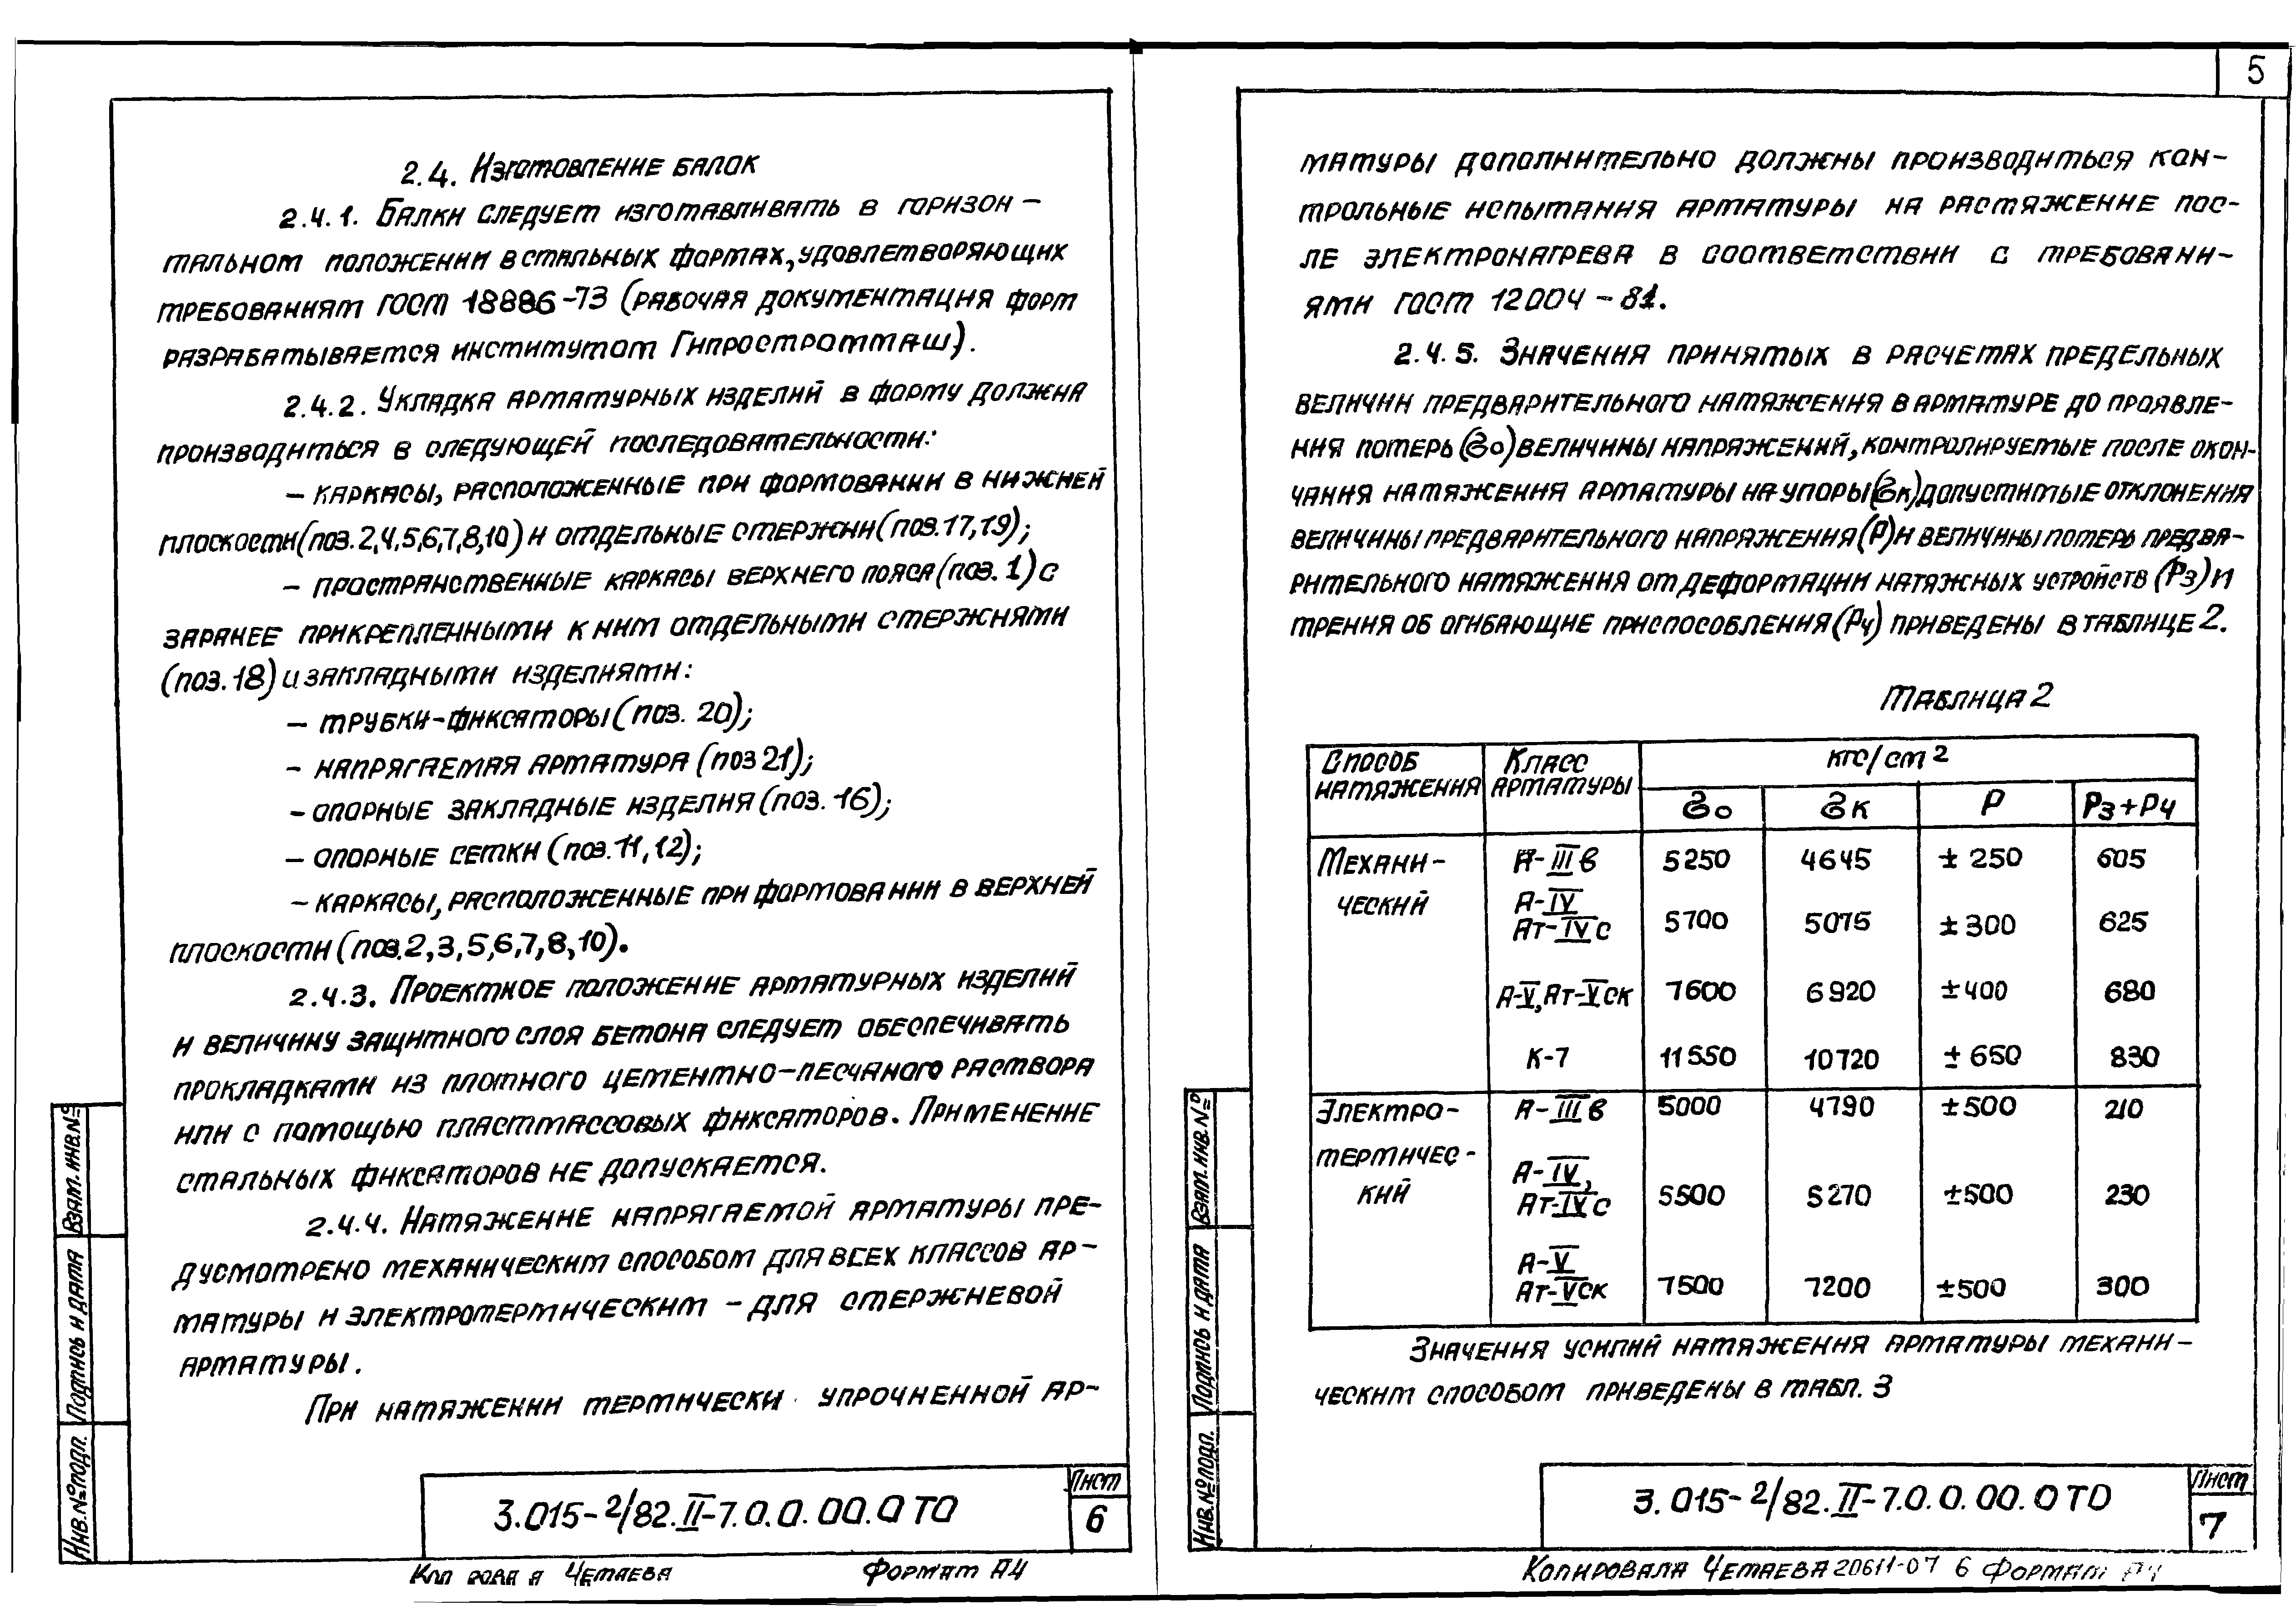 2.4. Изготовление балок
2.4.1. Балки следует изготавливать в горизон-
тальном положении в стальных формах, удовлетворяющих
требованиям ГОСТ 18886-73 (рабочая документация форм
разрабатывается институтом Гипростроммаш).
2.4.2. Укладка арматурных изделий в форму должна
производиться в следующей последовательности:
- каркасы, расположенные при формовании в нижней
плоскости (поз. 2,4,5,6,7,8,10) и отдельные стержни (поз. 17,19);
- пространственные каркасы верхнего пояса (поз. 1) с
заранее прикрепленными к ним отдельными стержнями
(поз. 18) и закладными изделиями:
- трубки-фиксаторы (поз. 20);
- напрягаемая арматура (поз 21);
- опорные закладные изделия (поз. 16);
- опорные сетки (поз. 11, 12);
- каркасы, расположенные при формовании в верхней
плоскости (поз. 2, 3, 5, 6, 7, 8, 10).
2.4.3. Проектное положение арматурных изделий
и величину защитного слоя бетона следует обеспечивать
прокладками из плотного цементно-песчаного раствора
или с помощью пластмассовых фиксаторов. Применение
стальных фиксаторов не допускается.
2.4.4. Натяжение напрягаемой арматуры пре-
дусмотрено механическим способом для всех классов ар-
матуры и электротермическим - для стержневой
арматуры.
При натяжении термически упрочненной ар-
3.015-2/82.II-7.0.0.00.0 ТО
Лист
6
Формат А4
Взам. инв. №
Подпись и дата
Инв. № подл.
5
матуры дополнительно должны производиться кон-
трольные испытания арматуры на растяжение пос-
ле электронагрева в соответствии с требовани-
ями ГОСТ 12004-81.
2.4.5. Значения принятых в расчетах предельных
величин предварительного натяжения в арматуре до проявле-
ния потерь (σ0) величины напряжений, контролируемые после окон-
чания натяжения арматуры на упоры (σк) допустимые отклонения
величины предварительного напряжения (P) и величины потерь предва-
рительного натяжения от деформации натяжных устройств (P3) и
трения об огибающие приспособления (P4) приведены в таблице 2.
Таблица 2
Способ натяжения | Класс арматуры | кгс/см2
σ0 | σк | P | P3+P4
Механи-ческий | А-IIIв | 5250 | 4645 | ± 250 | 605
А-IV Ат-IVс | 5700 | 5075 | ± 300 | 625
А-V, Ат-Vск | 7600 | 6920 | ± 400 | 680
К-7 | 11550 | 10720 | ± 650 | 830
Электро-термичес-кий | А-IIIв | 5000 | 4790 | ± 500 | 210
А-IV, Ат-IVс | 5500 | 5270 | ± 500 | 230
А-V Ат-Vск | 7500 | 7200 | ± 500 | 300
Значения усилий натяжения арматуры механи-
ческим способом приведены в табл. 3
3.015-2/82.II-7.0.0.00.0 ТО
Лист
7
Копировала Четаева 20611-07 6 Формат А4
Взам. инв. №
Подпись и дата
Инв. № подл.